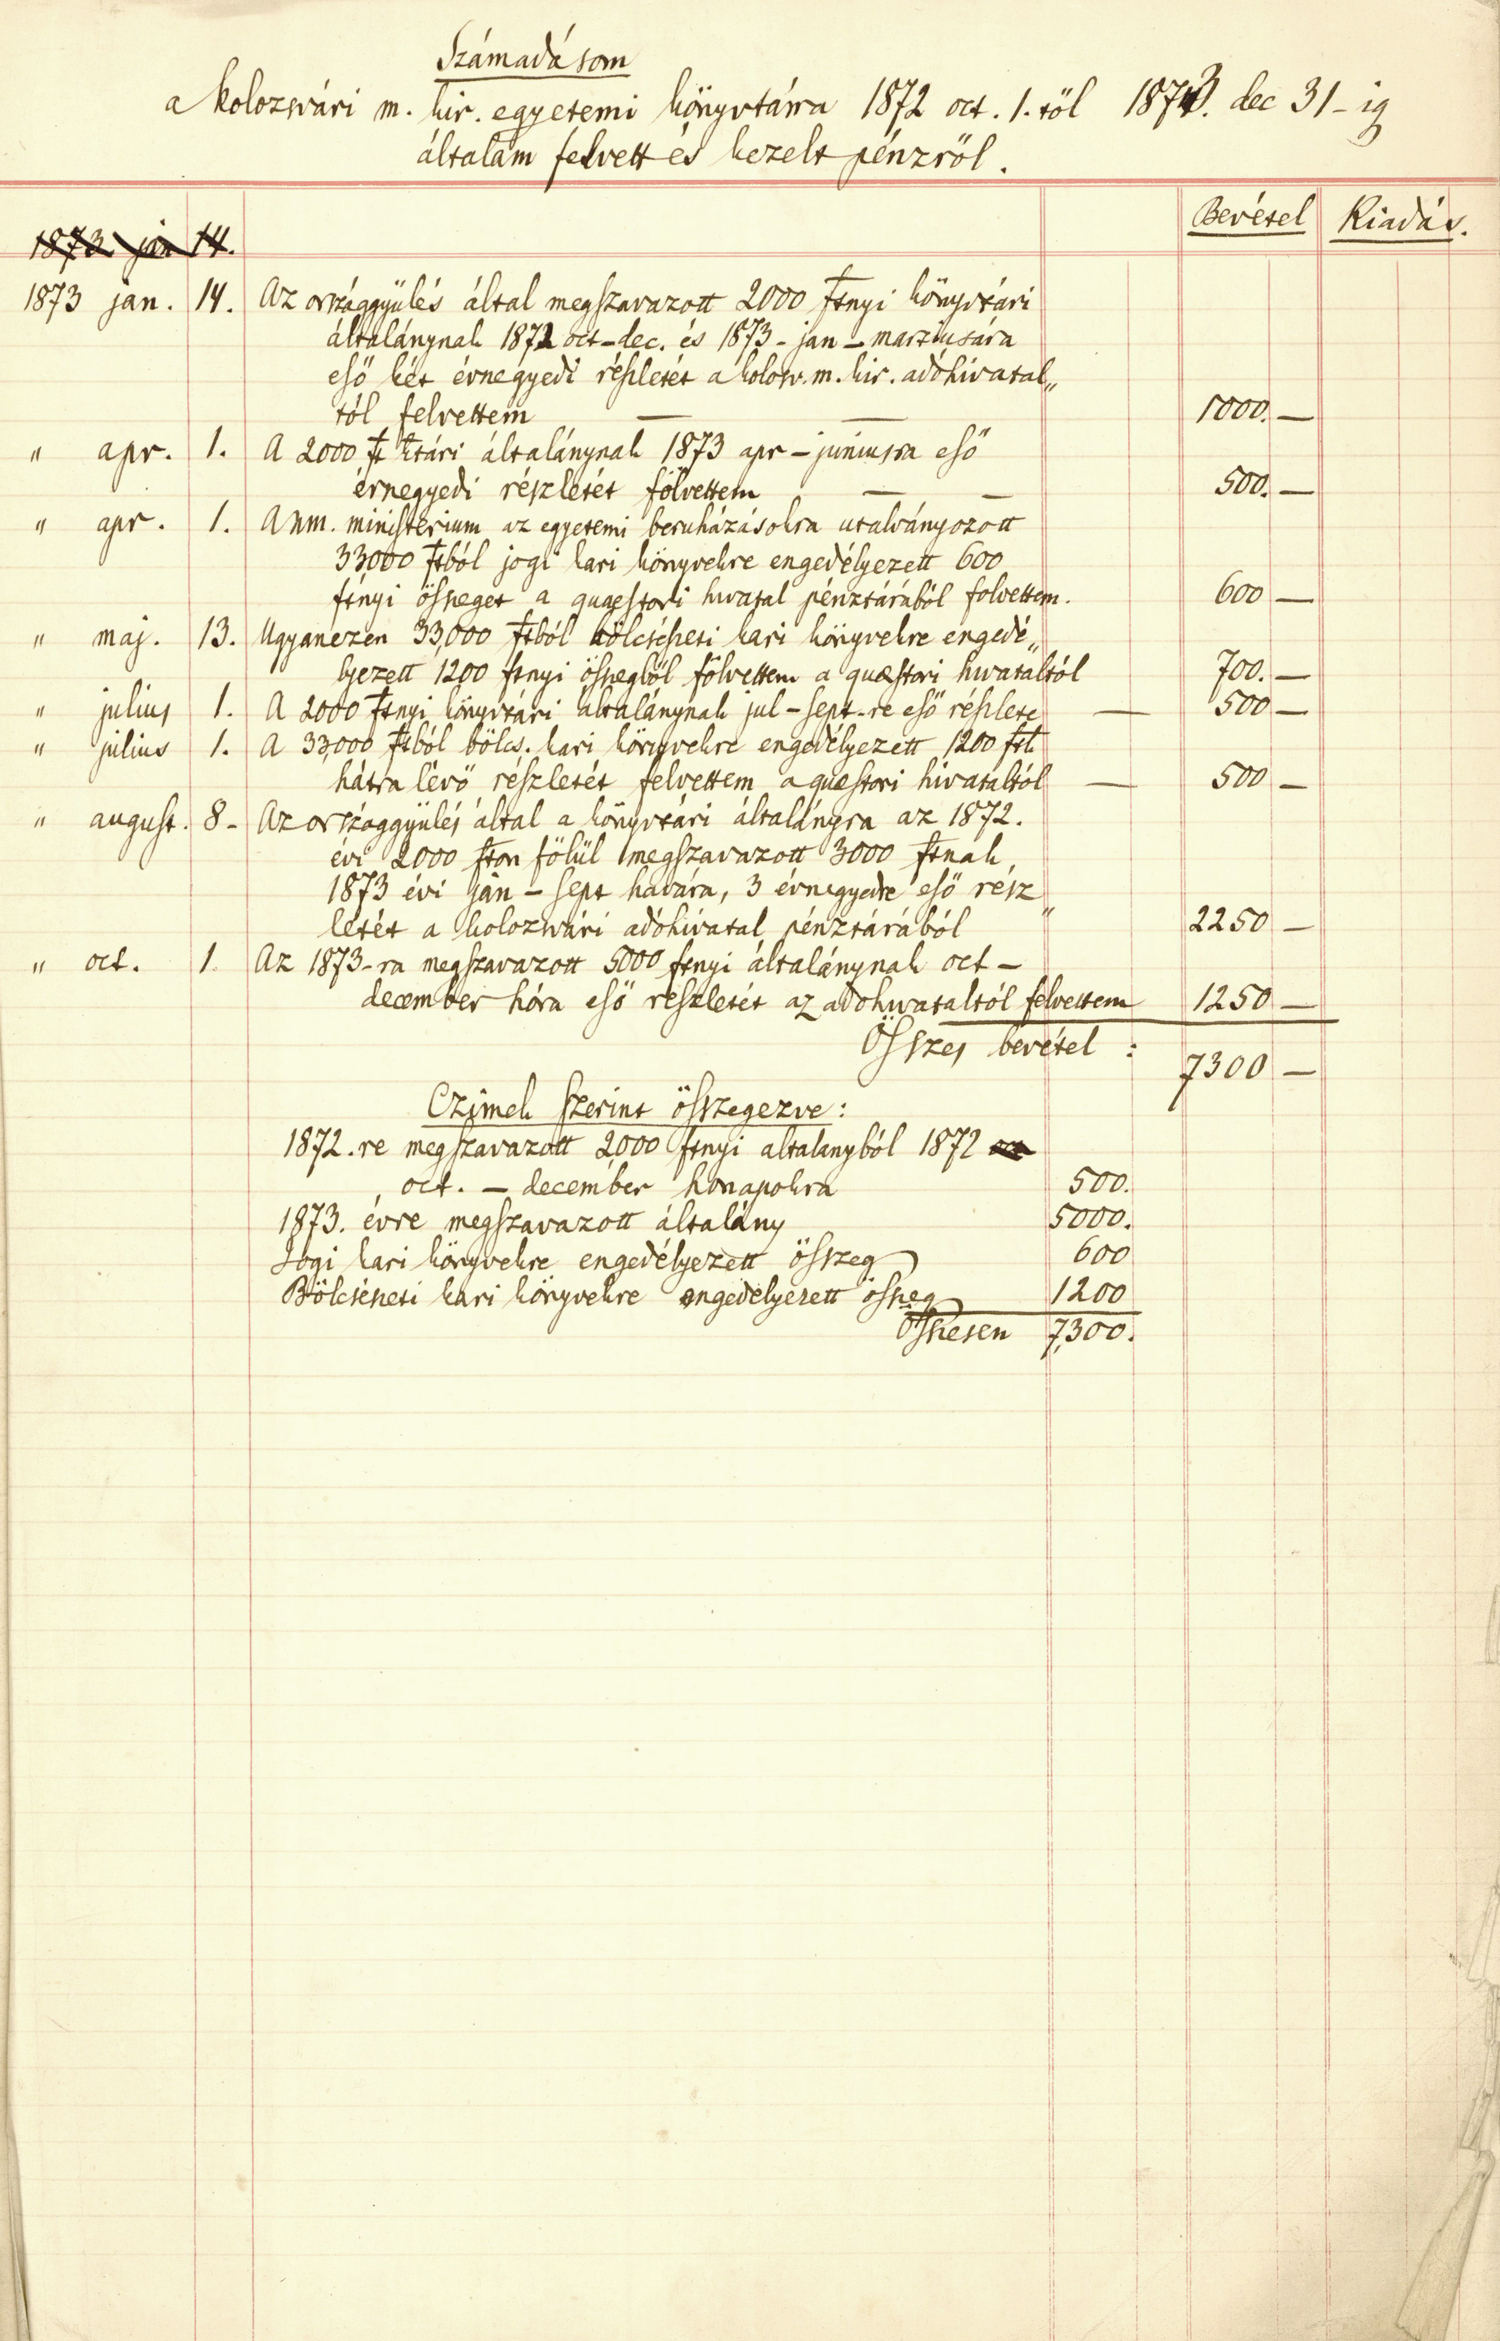 Számadásom
a kolozsvári m. kir. egyetemi könyvtárra 1872 oct. 1.től 1873. dec 31-ig
általam felvett és kezelt pénzről.
Bevétel Kiadás.
1873 jan 14.
1873 jan. 14. Az országgyülés által megszavazott 2000 ftnyi könyvtári
általánynak 1872 oct-dec. és 1873-jan-marziusára
eső két évnegyedi részletét a kolosv. m. kir. adóhivatal„
tól felvettem — — 1000. —
" apr. 1. A 2000 ft ktári általánynak 1873 apr-juniusra eső
évnegyedi részletét fölvettem — — 500. —
" apr. 1. A nm. ministérium az egyetemi beruházásokra utalványozott
33,000 ftból jogi kari könyvekre engedélyezett 600
ftnyi összeget a quaestori hivatal pénztárából fölvettem. 600 —
" maj. 13. Ugyanezen 33,000 ftból bölcsészeti kari könyvekre engedé„
lyezett 1200 ftnyi összegből fölvettem a quaestori hivataltól 700. —
" julius 1. A 2000 ftnyi könyvtári általánynak jul-sept-re eső részlete — 500 —
" julius 1. A 33,000 ftból bölcs. kari könyvekre engedélyezett 1200 ft.
hátra lévő részletét felvettem a quaestori hivataltól — 500 —
" august. 8- Az országgyülés által a könyvtári általányra az 1872.
évi 2000 fton fölül megszavazott 3000 ftnak
1873 évi jan - sept havára, 3 évnegyedre eső rész„
letét a kolozsvári adóhivatal pénztárából 2250 —
" oct. 1. Az 1873-ra megszavazott 5000 ftnyi általánynak oct-
december hóra eső részletét az adóhivataltól felvettem 1250 —
Összes bevétel : 7300 —
Czimek szerint összegezve:
1872.re megszavazott 2000 ftnyi altalanyból 1872 oct
oct. - december honapokra 500.
1873. évre megszavazott általány 5000.
Jogi kari könyvekre engedélyezett összeg 600
Bölcsészeti kari könyvekre engedélyezett összeg 1200
Összesen 7,300.